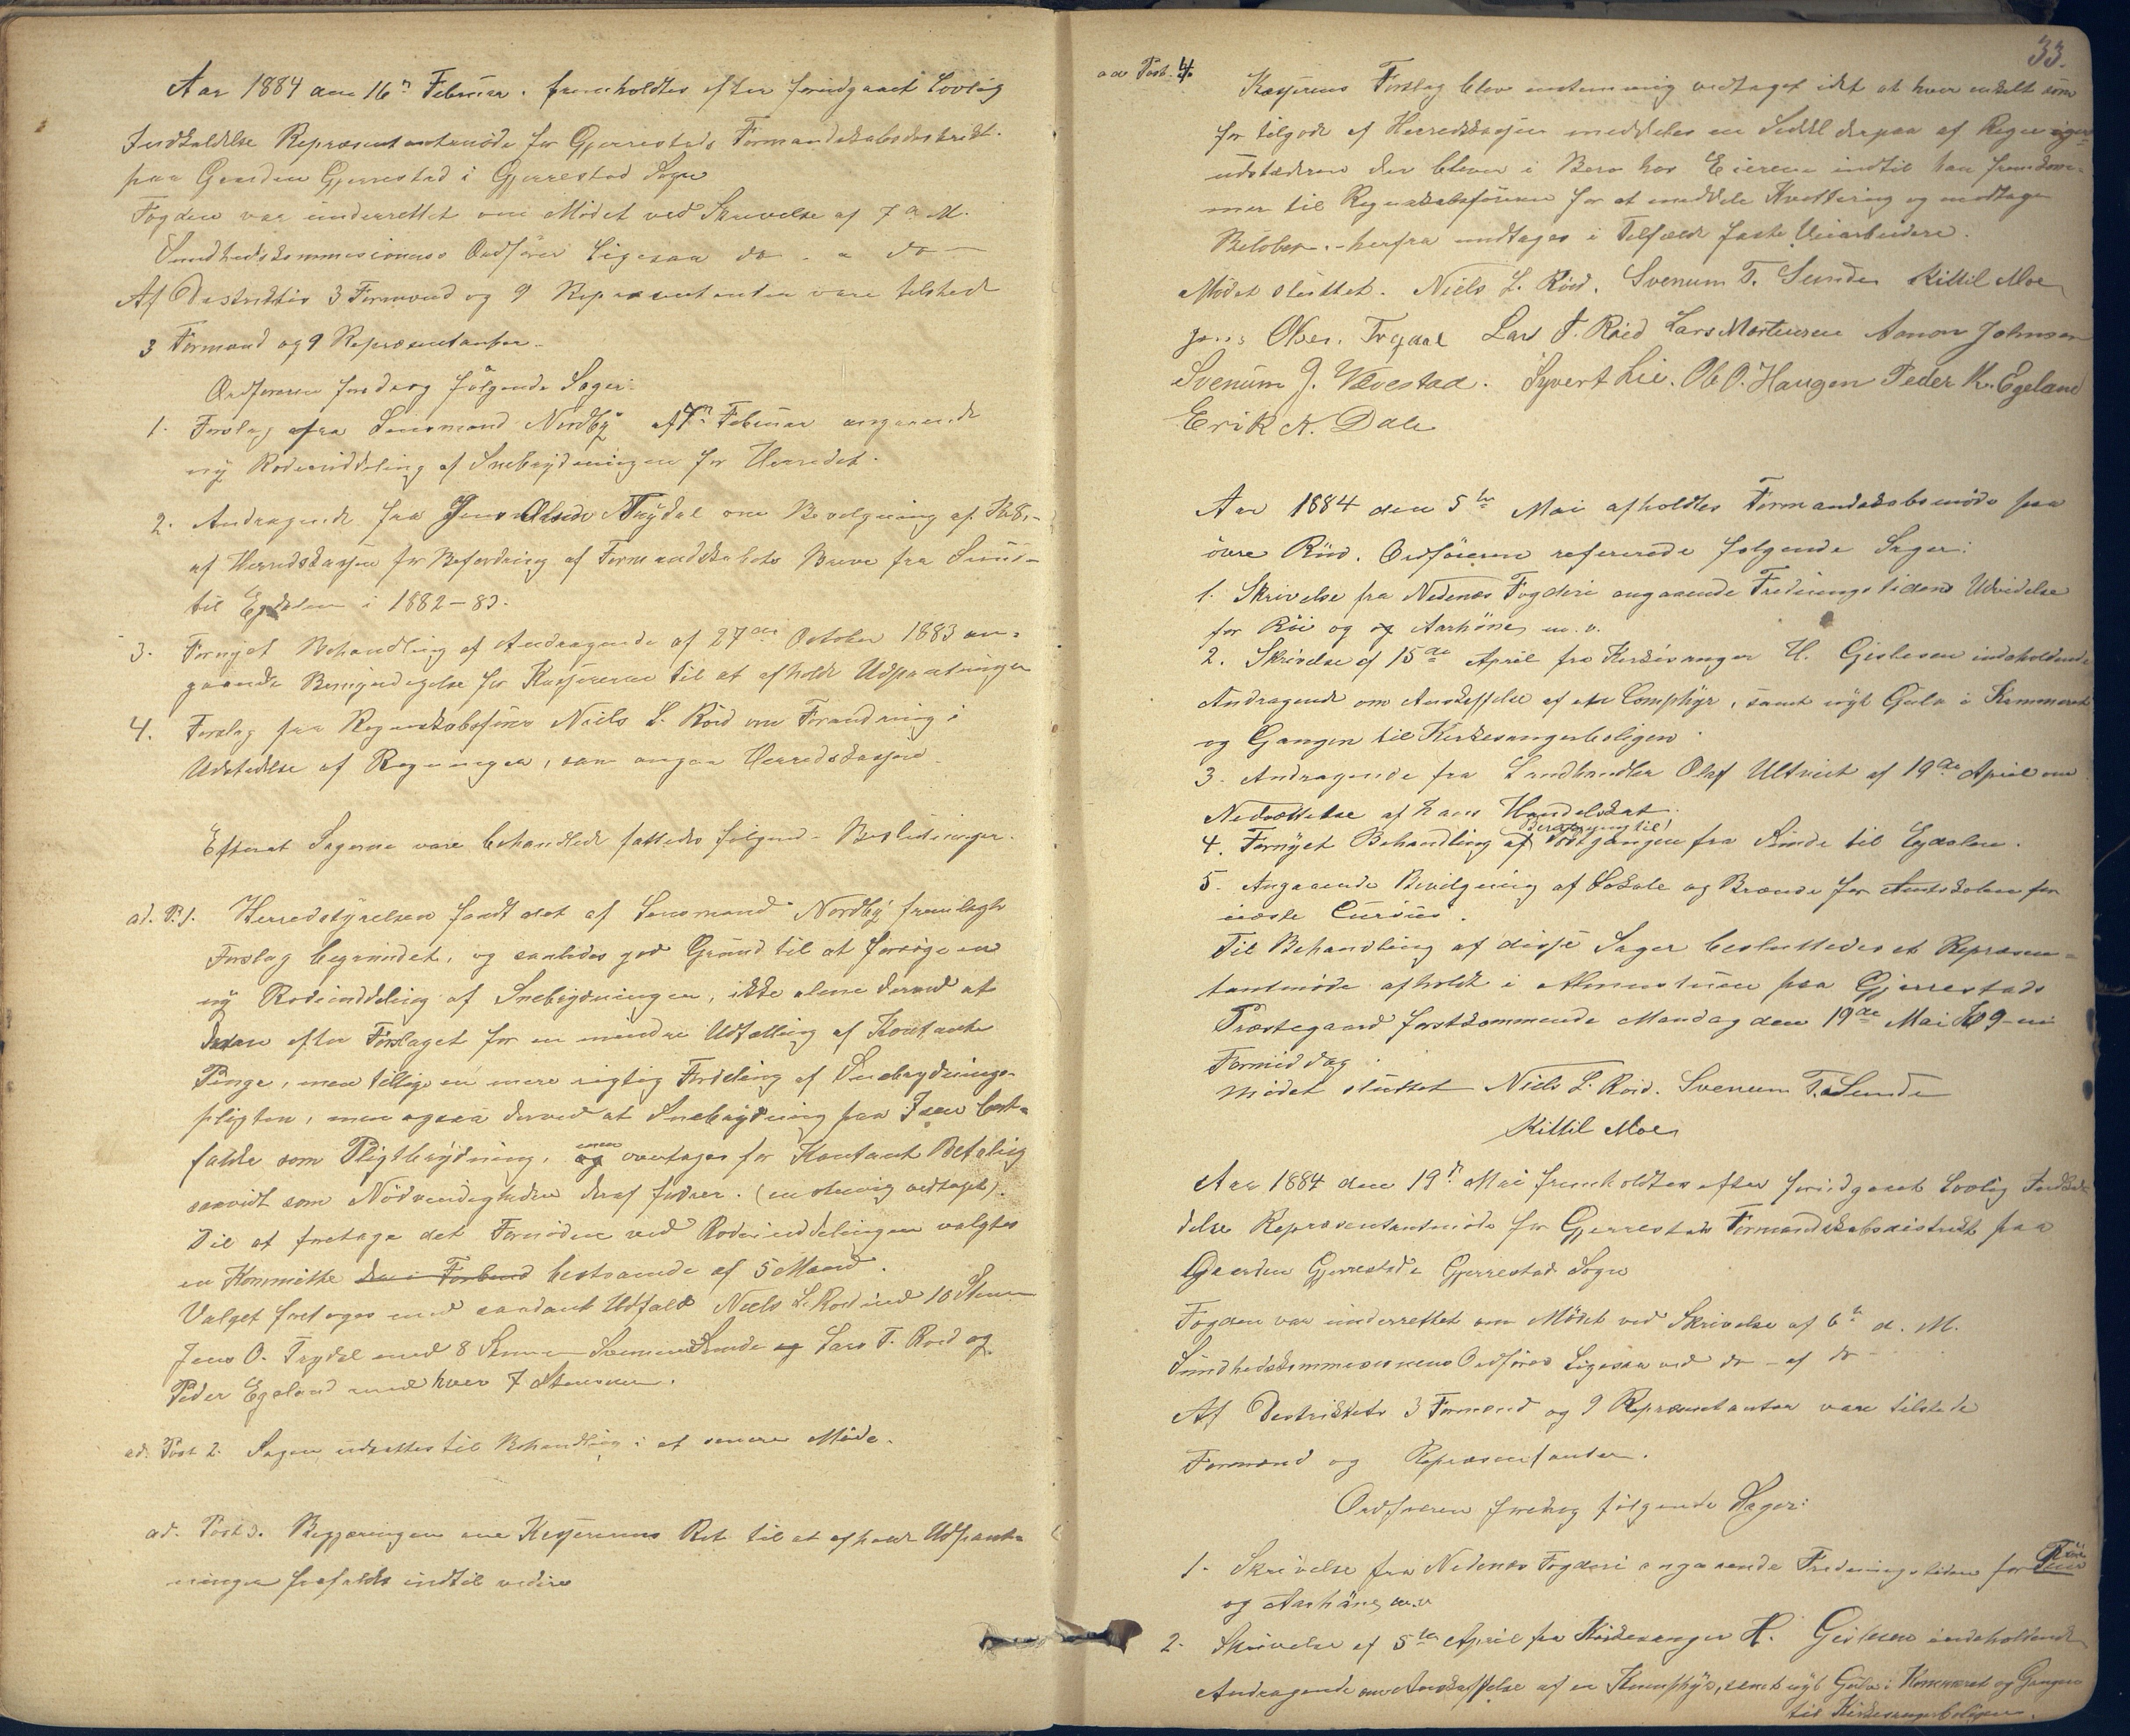 Aar 1884 den 16n Februar fremholdtes efter forudgaaet Lovlig
Indkaldelse Repræsentantmøde for Gjerrestads Formandskabsdistrikt
paa Gaarden Gjerrestad i Gjerrestad Sogn
Fogden var underrettet om Mødet ved Skrivelse af 7 d. M.
Sundhedskommisionens Ordfører Ligesaa do - a do -
Af Destriktets 3 Formænd og 9 Repræsentanter vare tilstede
3 Formænd og 9 Repræsentanter
Ordføreren foredrog følgende Sager:
1. Forslag fra Lensmand Nordby af 7n Februar angaaende
ny Rodeinddeling af Snebrydningen for Herredet.
2. Andragende fra Jens Olsen Trydal om Bevilgning af Kr 8,-
af Herredskassen for Befordring af Formandskabets Breve fra Sunde
til Egdalen i 1882-83.
3. Fornyet Behandling af Andragende af 27de October 1883 an=
gaaende Bemyndigelse for Kasjereren til at afholde Udpantninger
4. Forslag fra Regnskabsfører Niels L. Röed om Forandring i
Udstedelse af Regninger, som angaa Herredskassen.
Efterat Sagerne vare behandlede fattedes følgende Beslutninger.
ad. P. 1. Herredstyrelsen fandt det af Lensmand Nordby fremlagte
Forslag begrundet, og saaledes god Grund til at forsøge en
ny Rodeinddeling af Snebrydningen, ikke alene derved at
derved efter Forslaget for en mindre Udtælling af Kontante
Penge, men tillige en mere rigtig Fordeling af Snebrydnings=
pligten, men ogsaa derved at Snebrydning paa Isen bort=
falder som Pligtbrydning, og men overtages for Kontant Betaling
saavidt som Nødvendigheden deraf fodrer. (enstemmig vedtaget).
Til at foretage det Fornødne ved Rodeinddelingen valgtes
en Kommitte bestaaende af 5 Mænd.
Valget foretoges med saadant Udfald Niels L. Röed med 10 Stemmer
Jens O. Trydal med 8 Stemmer Svenum Sunde og Lars T. Roed og
Peder Egeland med hver 7 Stemmer.
ad. Post 2. Sagen udsættes til Behandling i et senere Møde.
ad. Post 3. Begjæringen om Kasjererens Ret til at afholde Udpant=
ninger frafaldt indtil videre
33.
ad Post. 4.
Kasjerens Forslag blev enstemmig vedtaget idet at hver enkelt som
har tilgode af Herredskassen meddeles en Seddel derpaa af Regnings=
udstederen der bliver i Bero hos Eieren indtil han fremkom=
mer til Regnskabsføreren for at meddele Kvittering og modtage
Beløbet. - herfra undtages i Tilfælde faste Veiarbeidere.
Mödet sluttet. Niels L. Röed. Svenum T. Sunde Kittil Moe
Jens Olsen Trydal Lars T. Röed Lars Mortensen Aanon Johnsen
Svenum J. Vævestad. Syvert Lie. Ole O. Haugen Peder K. Egeland
Erik N. Dale
Aar 1884 den 5te Mai afholdtes Formandskabsmöde paa
övre Röed. Ordföreren refererede følgende Sager:
1. Skrivelse fra Nedenæs Fogderi angaaende Fredningstidens Udvidelse
for Röi og og Aarhöns m. v.
2. Skrivelse af 15de April fra Kirkesanger H. Gislesen indeholdende
Andragende om Anskaffelse af en Comphyr, samt nyt Gulv i Kammeret
og Gangen til Kirkesangerboligen.
3. Andragende fra Landhandler Olaf Ultveit af 19de April om
Nedsættelse af hans Handelskat.
4. Fornyet Behandling af Bevilgning til Postgangen fra Sunde til Egdalen.
5. Angaaende Bevilgning af Lokale og Brænde for Amtsskolen for
næste Cursus.
Til Behandling af disse Sager besluttedes et Repræsen=
tantmöde afholdt i Almenstuen paa Gjerrestads
Præstegaard førstkommende Mandag den 19de Mai Kl 9 -
Formiddag.
Mödet sluttet Niels L. Roed. Svenum T. Sunde
Kittil Moe
Aar 1884 den 19n Mai fremholdtes efter forudgaaet Lovlig Indkal=
delse Repræsentantmöde for Gjerrestads Formandskabsdistrikt paa
Gaarden Gjerrestad i Gjerrestad Sogn
Fogden var underrettet om Mödet ved Skrivelse af 6te d. M.
Sundhedskommisionens Ordförer Ligesaa ved do - af do
Af Destriktets 3 Formænd og 9 Repræsentanter vare tilstede
Formænd og Repræsentanter.
Ordføreren foredrog følgende Sager:
1. Skrivelse fra Nedenæs Fogderi angaaende Fredningstiden for Röi
og Aarhöns m.v
2. Skrivelse af 5te April fra Kirkesanger H. Gislesen indeholdende
Andragende om Anskaffelse af en Komphyr, samt nyt Gulv i Kammeret og Gangen
til Kirkesangerboligen.